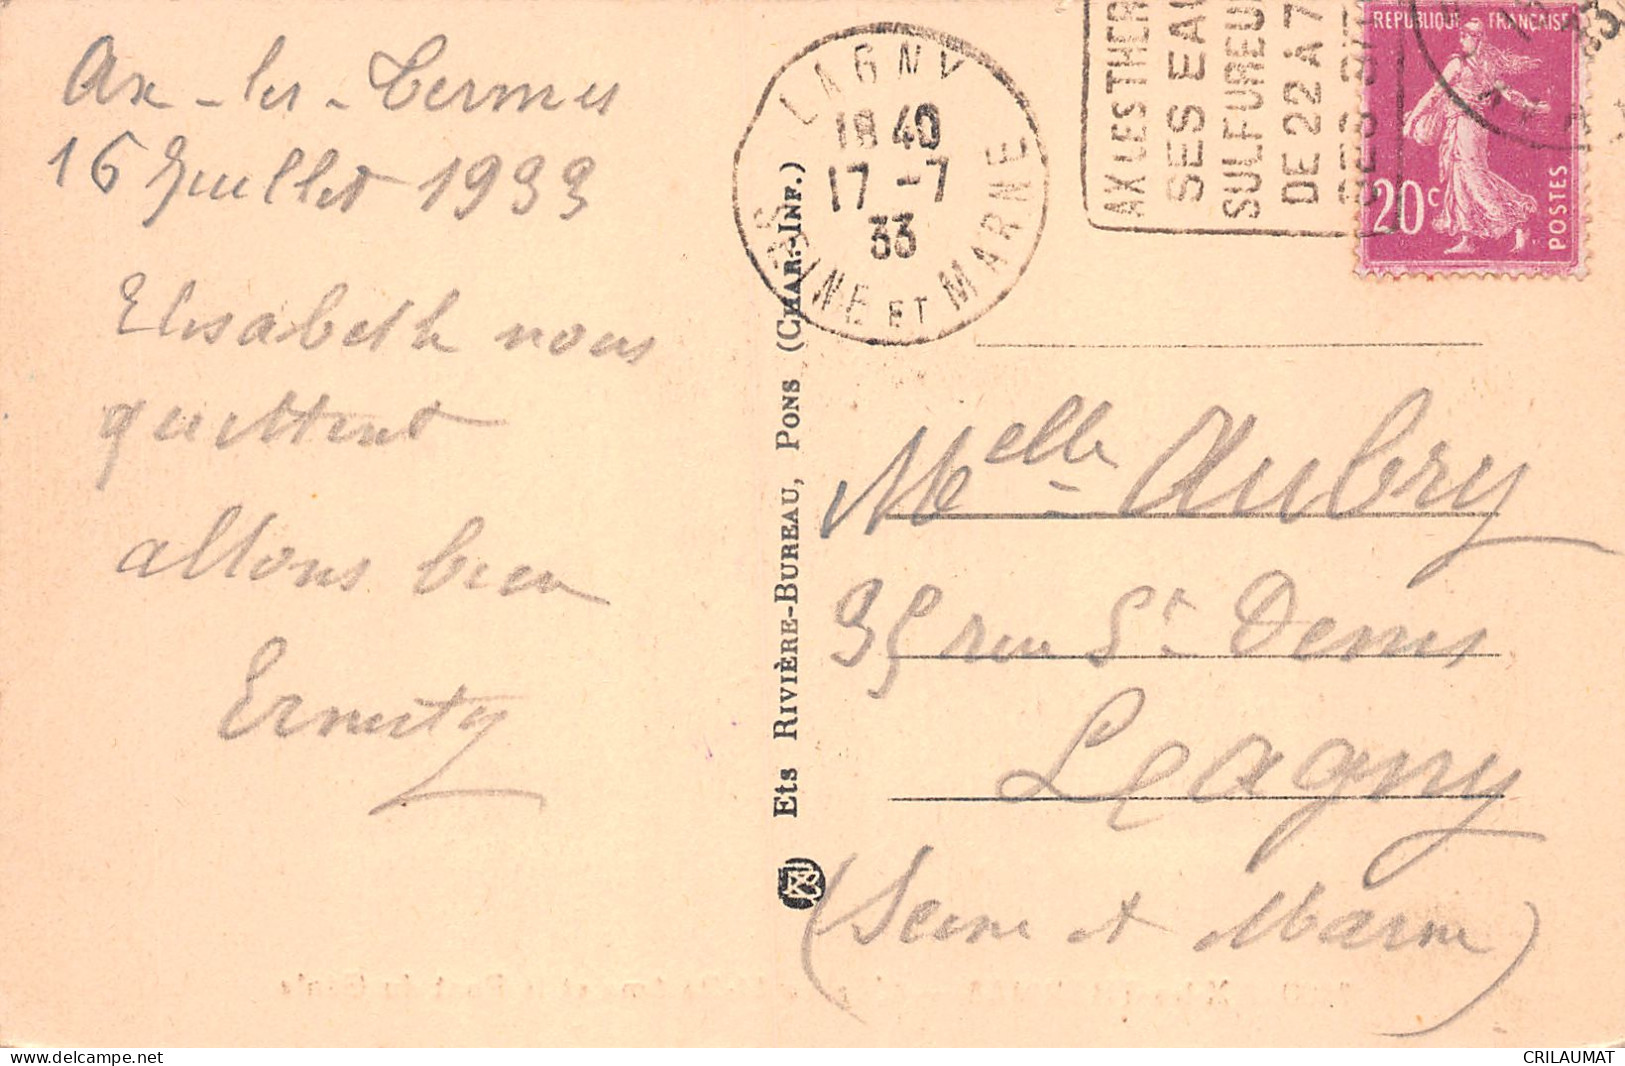 Ax-les-Termes
16 Juillet 1933
Elisabeth nous
quittent
allons bien
LAGNY
18 40
17 -7
33
SEINE ET MARNE
AX LES THER
SES EAU
SULFUREU
DE 22 A 7
RÉPUBLIQUE FRANÇAISE
20c
POSTES
Ets RIVIÈRE-BUREAU, PONS (CHAR.-INF.)
Melle Aubry
35 rue St Denis
Lagny
(Seine et Marne)
CRILAUMAT